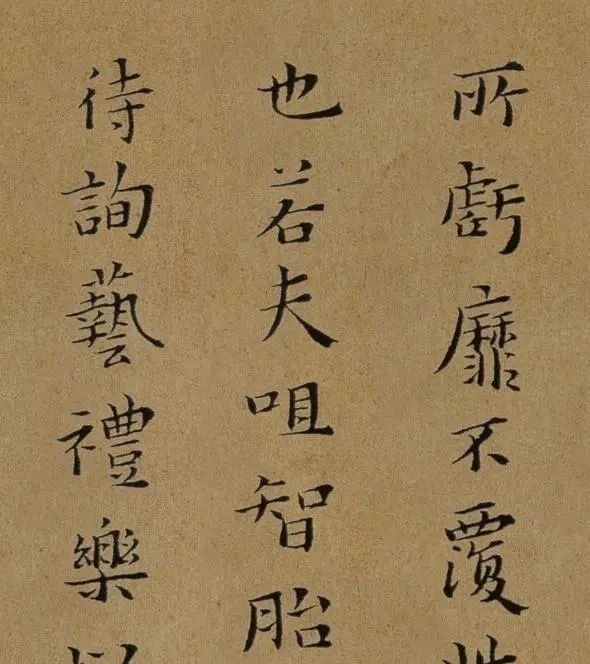 所虧靡不覆此
也若夫咀智胎
待詢藝禮樂以